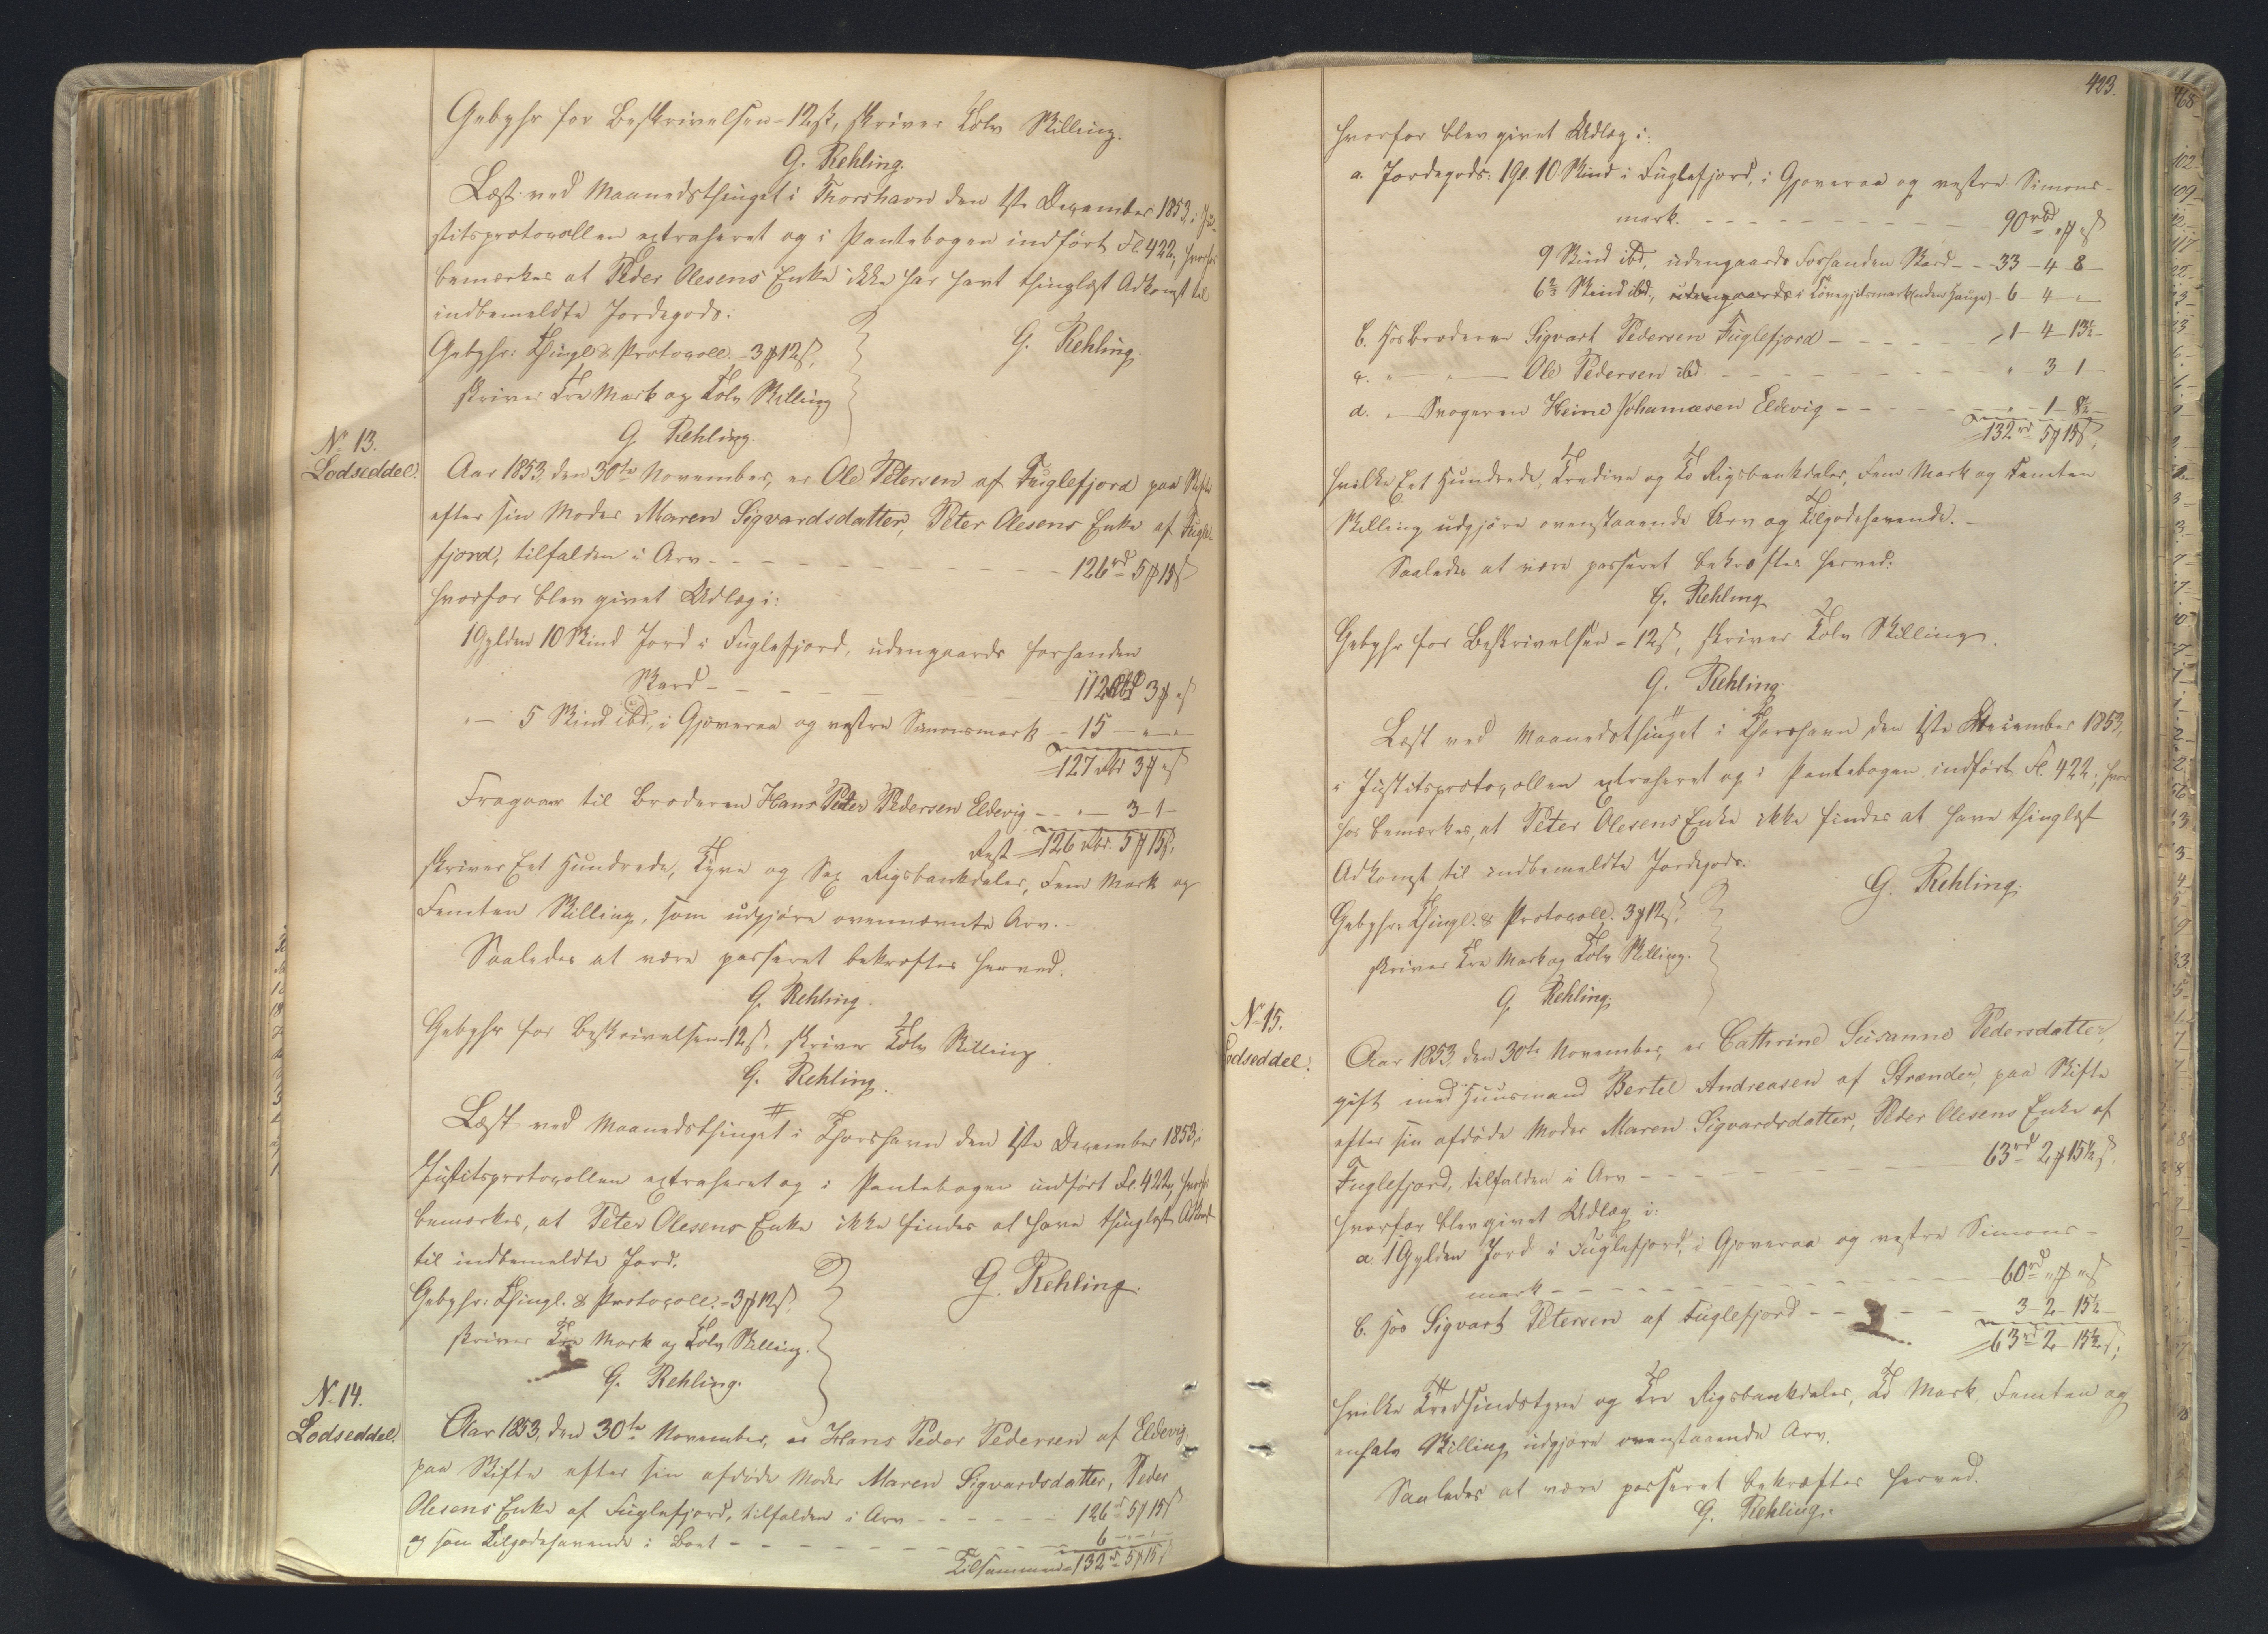 Gebyhr for Beskrivelsen - 12ß, skriver Tolv Skilling.
G. Rehling.
Læst ved Maanedsthinget i Thorshavn den 1ste December 1853, i Ju-
stitsprotocollen extraheret og i Pantebogen indført Fl. 422, hvorhos
bemærkes at Peder Olesens Enke ikke har havt thinglæst Adkomst til
indbemeldte Jordegods.
Gebyhr: Thingl. & Protocoll. - 3 ℳ 12ß,
G. Rehling.
skriver Tre Mark og Tolv Skilling
G. Rehling.
No 13.
Lodseddel.
Aar 1853, den 30te November, er Ole Petersen af Fuglefjord paa Skifte
efter sin Moder Maren Sigvardsdatter, Peter Olesens Enke af Fugle-
fjord, tilfalden i Arv - - - 126 rd 5 ℳ 15ß
hvorfor blev givet Udlæg i:
1 Gylden 10 Skind Jord i Fuglefjord, udengaards forhanden
Skard - - - 112 Rbd 3 ℳ " ß
" — 5 Skind ibd., i Gjoveraa og vestre Simonsmark - 15 — " — " —
127 Rbd 3 ℳ " ß
Fragaaer til Broderen Hans Peter Pedersen Eldevig - - " — 3 - 1 -
Rest 126 Rbd. 5 ℳ 15ß,
skriver Eet Hundrede, Tyve og Sex Rigsbankdaler, Fem Mark og
Femten Skilling, som udgjøre ovennævnte Arv. -
Saaledes at være passeret bekræftes herved.
G. Rehling.
Gebyhr for Beskrivelsen 12ß, skriver Tolv Skilling
G. Rehling.
Læst ved Maanedsthinget i Thorshavn den 1ste December 1853, i
Justitsprotocollen extraheret og i Pantebogen indført Fl. 422, hvorhos
bemærkes, at Peter Olesens Enke ikke findes at have thinglæst Adkomst
til indbemeldte Jord.
Gebyhr: Thingl. & Protocoll. - 3 ℳ 12ß,
G. Rehling.
skriver Tre Mark og Tolv Skilling.
G. Rehling.
No 14.
Lodseddel.
Aar 1853, den 30te November, er Hans Peder Pedersen af Eldevig,
paa Skifte efter sin afdøde Moder Maren Sigvardsdatter, Peder
Olesens Enke af Fuglefjord, tilfalden i Arv - - - 126 rd 5 ℳ 15ß
og som Tilgodehavende i Boet - - - 6 - " - " -
Tilsammen 132 rd 5 ℳ 15ß
423.
hvorfor blev givet Udlæg i:
a. Jordegods: 1 Gl. 10 Skind i Fuglefjord, i Gjoveraa og vestre Simons-
mark. - - - 90 rbd " ℳ " ß
9 Skind ibd., udengaards Forhanden Skard - - 33 - 4 - 8 -
6 2/3 Skind ibd., udengaards i (uden Hauge) - 6 - 4 - " -
b. Hos Broderen Sigvart Pedersen Fuglefjord - - - 1 - 4 - 13½ -
c. " — " — Ole Pedersen ibd. - - - " 3 - 1 -
d. " — Svogeren Heine Johannesen Eldevig - - - " - 1 - 8½ -
132 rd 5 ℳ 15ß,
hvilke Eet Hundrede, Tredive og To Rigsbankdaler, Fem Mark og Femten
Skilling udgjøre ovenstaaende Arv og Tilgodehavende. -
Saaledes at være passeret bekræftes herved.
G. Rehling
Gebyhr for Beskrivelsen - 12ß, skriver Tolv Skilling.
G. Rehling.
Læst ved Maanedsthinget i Thorshavn den 1ste December 1853,
i Justitsprotocollen extraheret og i Pantebogen indført Fl. 422, hvor-
hos bemærkes, at Peter Olesens Enke ikke findes at have thinglæst
Adkomst til indbemeldte Jordegods.
G. Rehling.
Gebyhr: Thingl. & Protocoll. 3 ℳ 12ß,
skriver Tre Mark og Tolv Skilling.
G. Rehling.
No 15.
Lodseddel.
Aar 1853, den 30te November, er Cathrine Susanne Pedersdatter,
gift med Huusmand Bertel Andreasen af Strænder, paa Skifte
efter sin afdøde Moder Maren Sigvardsdatter, Peder Olesens Enke af
Fuglefjord, tilfalden i Arv - - - 63 rd 2 ℳ 15½ ß.
hvorfor blev givet Udlæg i:
a. 1 Gylden Jord i Fuglefjord, i Gjoveraa og vestre Simons-
mark - - - 60 rd " ℳ " ß
b. Hos Sigvart Petersen af Fuglefjord - - - 3 - 2 - 15½ -
63 rd 2 - 15½ ß,
hvilke Tredsindstyve og Tre Rigsbankdaler, To Mark Femten og
enhalv Skilling udgjøre ovenstaaende Arv.
Saaledes at være passeret bekræftes herved.
G. Rehling.